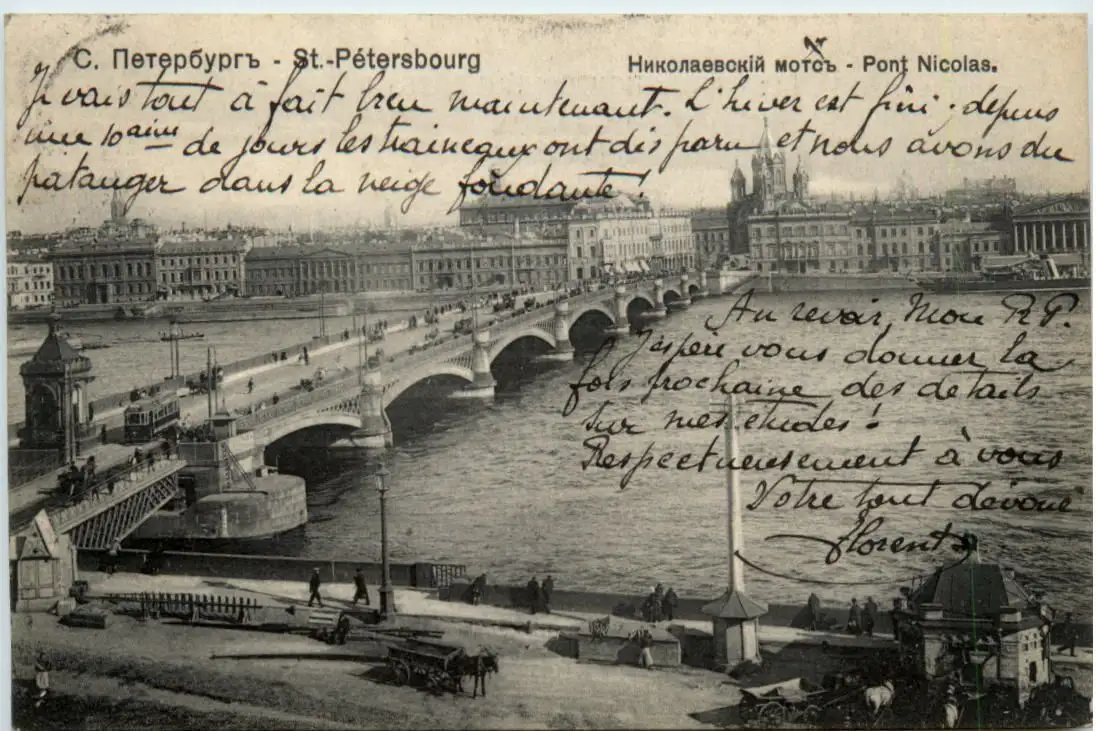 С. Петербургъ - St.-Pétersbourg
Николаевскій мотсъ - Pont Nicolas.
J'y vais tout à fait bien maintenant. L'hiver est fini; depuis
une 10aine de jours les traineaux ont disparu et nous avons du
patauger dans la neige fondante!
Au revoir, Mon R.P.
J'espère vous donner la
fois prochaine des détails
sur mes études!
Respectueusement à vous
Votre tout dévoué
Florent